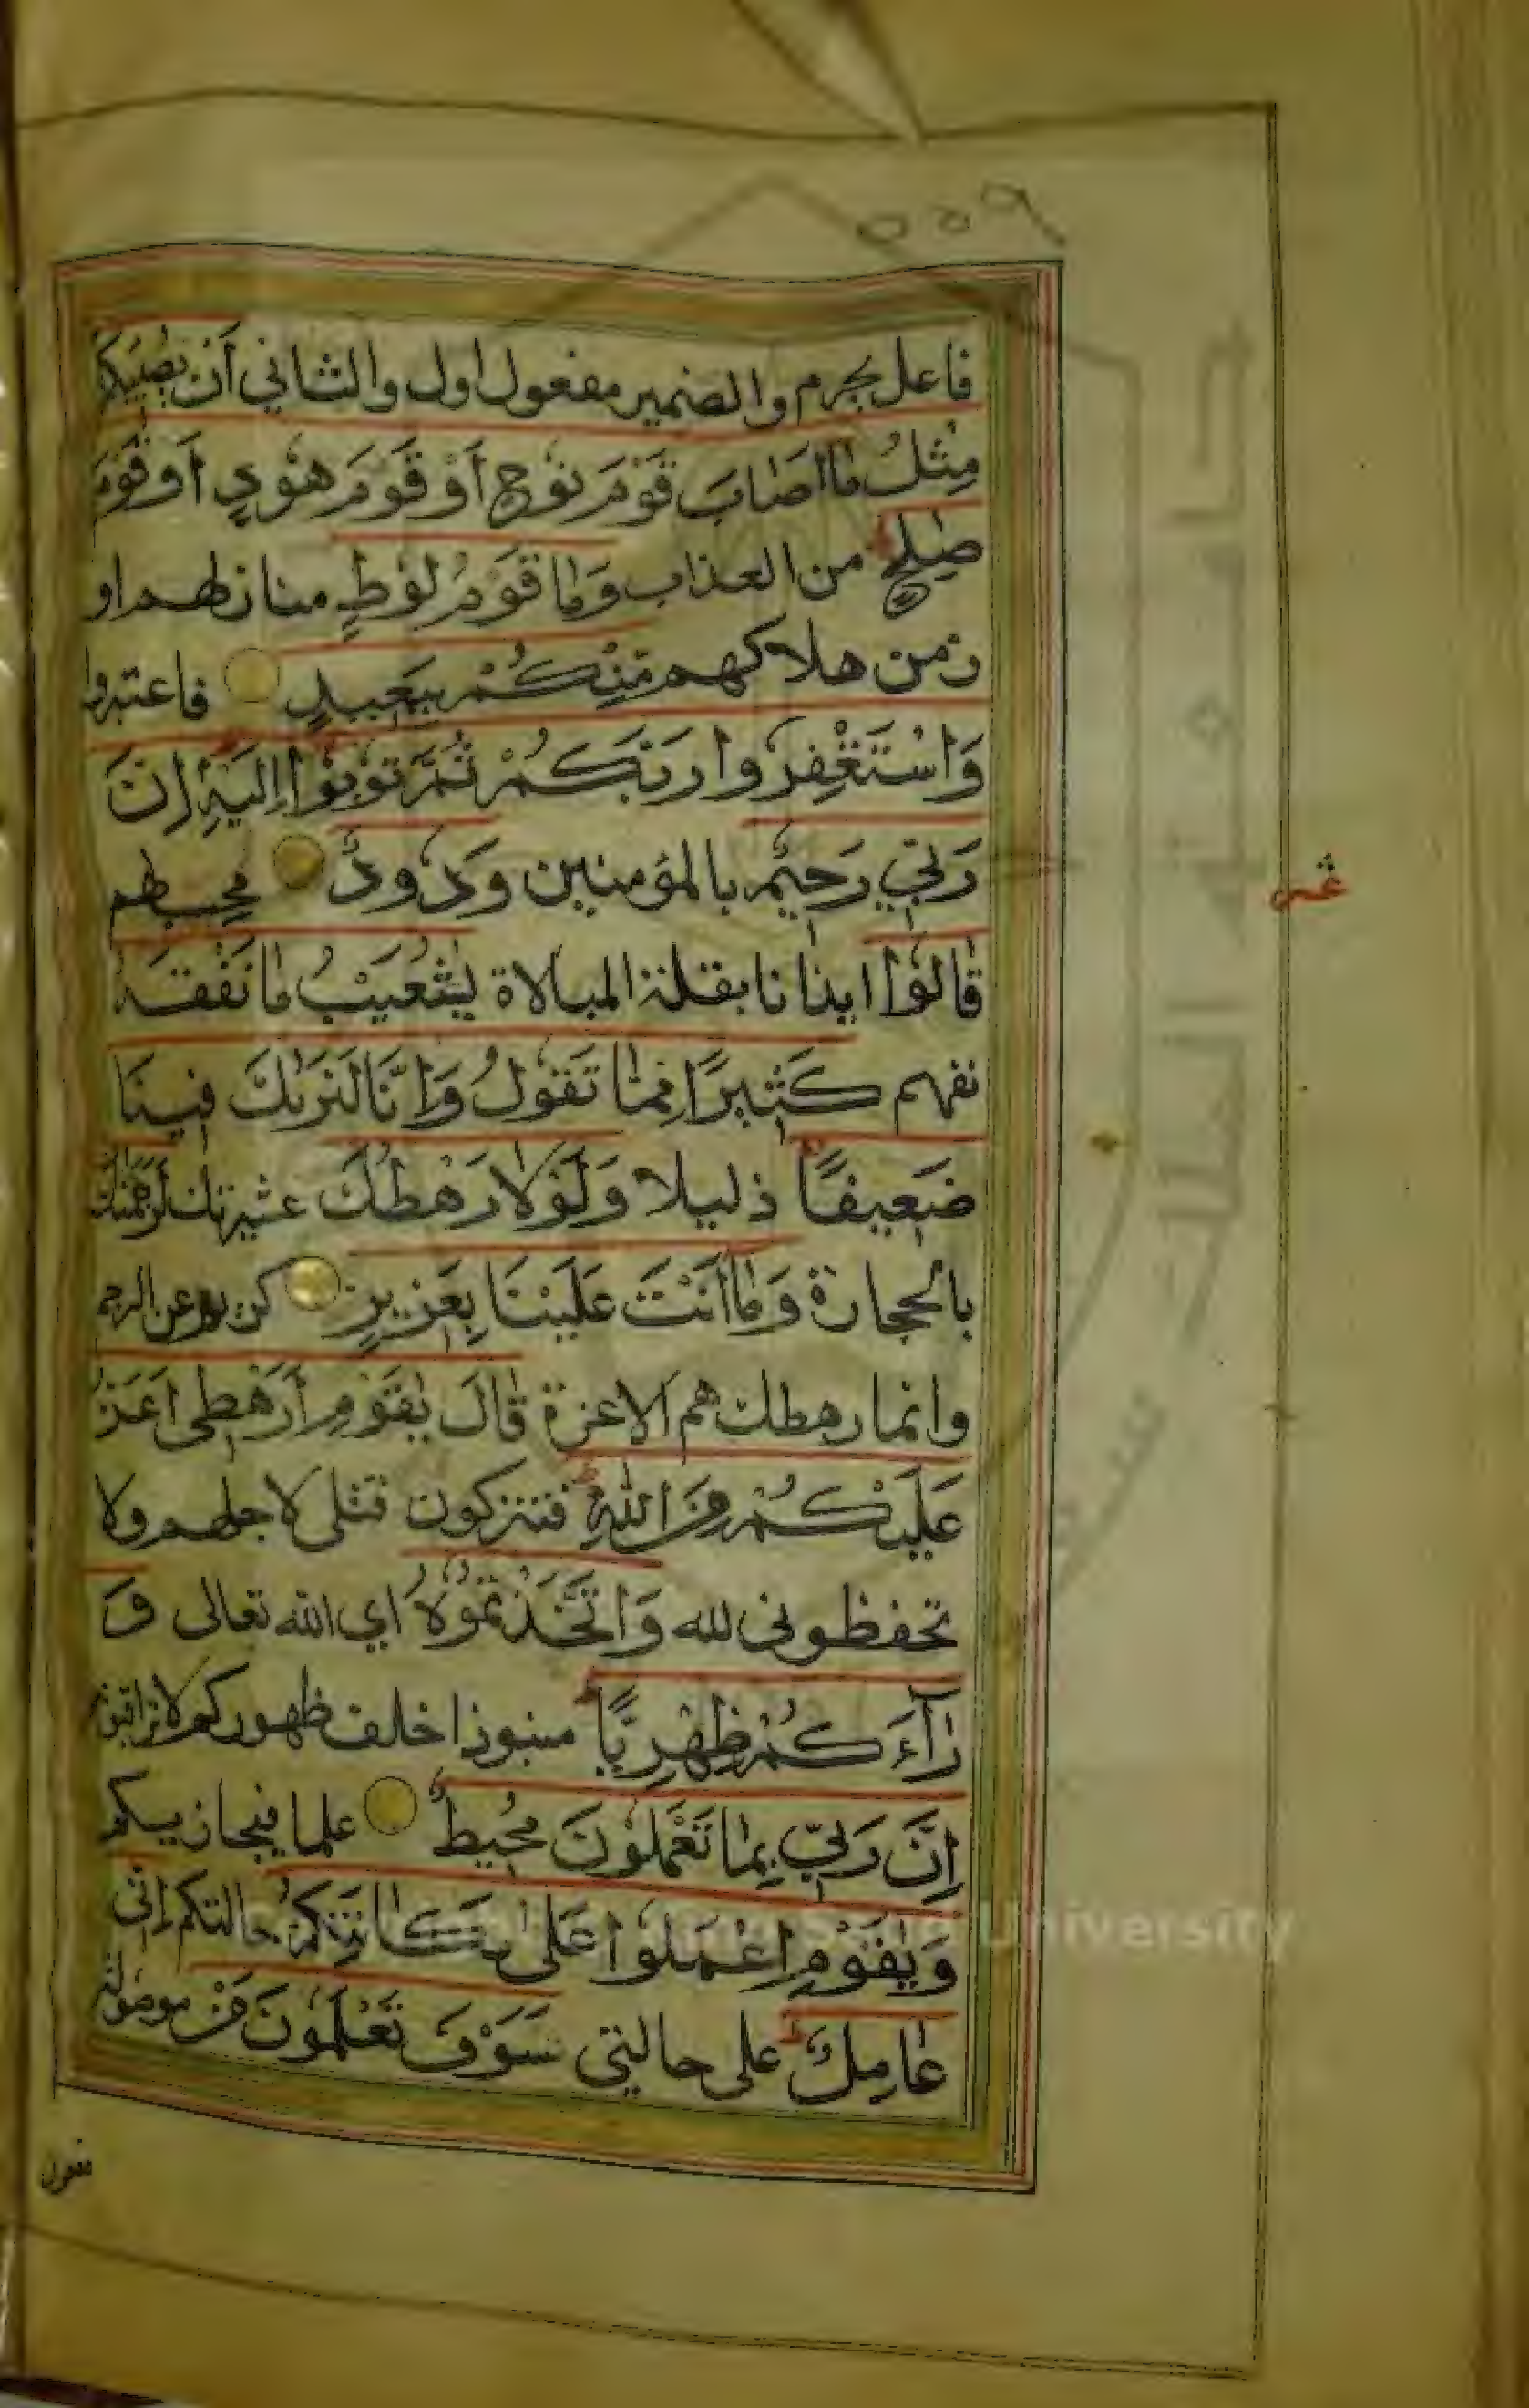 ٥٥٩
فاعل يجرم والضمير مفعول اول والثاني أَنْ يُصِيبَكُمْ
مِثْلُ مَا أَصَابَ قَوْمَ نُوحٍ أَوْ قَوْمَ هُودٍ أَوْ قَوْمَ
صٰلِحٍ من العذاب وَمَا قَوْمُ لُوطٍ منازلهم او
زمن هلاكهم مِنْكُمْ بِبَعِيدٍ فاعتبروا
وَاسْتَغْفِرُوا رَبَّكُمْ ثُمَّ تُوبُوا إِلَيْهِ إِنَّ
رَبِّي رَحِيمٌ بالمؤمنين وَدُودٌ محب لهم
قَالُوا ايذانا بقلة المبالاة يٰشُعَيْبُ مَا نَفْقَهُ
نفهم كَثِيرًا مِمَّا تَقُولُ وَإِنَّا لَنَرٰىكَ فِينَا
ضَعِيفًا ذليلا وَلَوْلَا رَهْطُكَ عشيرتك لَرَجَمْنٰكَ
بالحجارة وَمَا أَنْتَ عَلَيْنَا بِعَزِيزٍ كريم عن الرجم
وانما رهطك هم الاعزة قَالَ يٰقَوْمِ أَرَهْطِي أَعَزُّ
عَلَيْكُمْ مِنَ اللّٰهِ فتتركون قتلى لاجلهم ولا
تحفظوني لله وَاتَّخَذْتُمُوهُ اي الله تعالى وَ
رَآءَكُمْ ظِهْرِيًّا منبوذا خلف ظهوركم لا تراقبونه
إِنَّ رَبِّي بِمَا تَعْمَلُونَ مُحِيطٌ علما فيجازيكم
وَيٰقَوْمِ اعْمَلُوا عَلَى مَكَانَتِكُمْ حالتكم إِنِّي
عَامِلٌ على حالتي سَوْفَ تَعْلَمُونَ مَنْ موصولة
مفعول